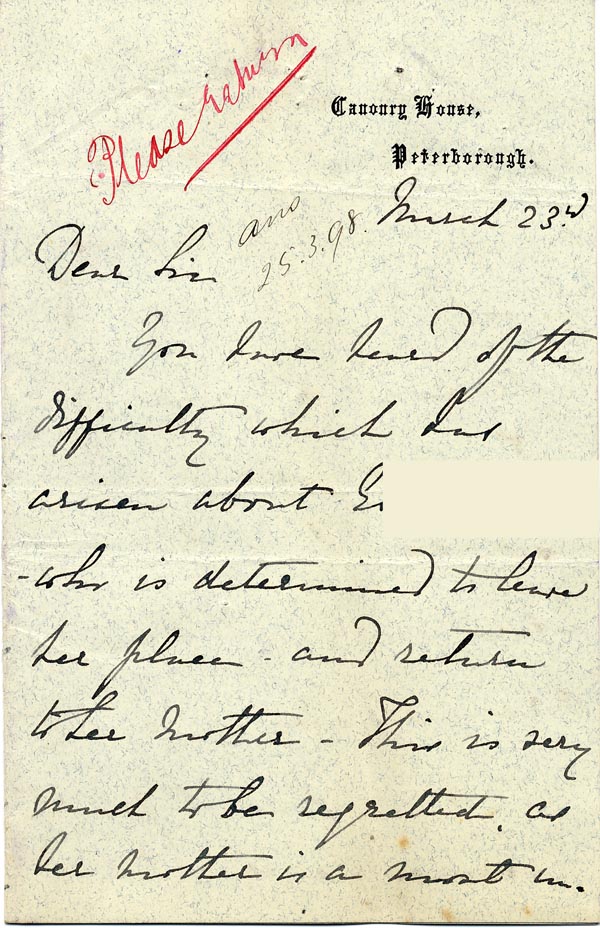 Please return
Canonry House,
Peterborough.
March 23rd
ans
25.3.98.
Dear Sir
You have heard of the
difficulty which has
arisen about
who is determined to leave
her place - and return
to her mother - This is very
much to be regretted, as
her mother is a most un-